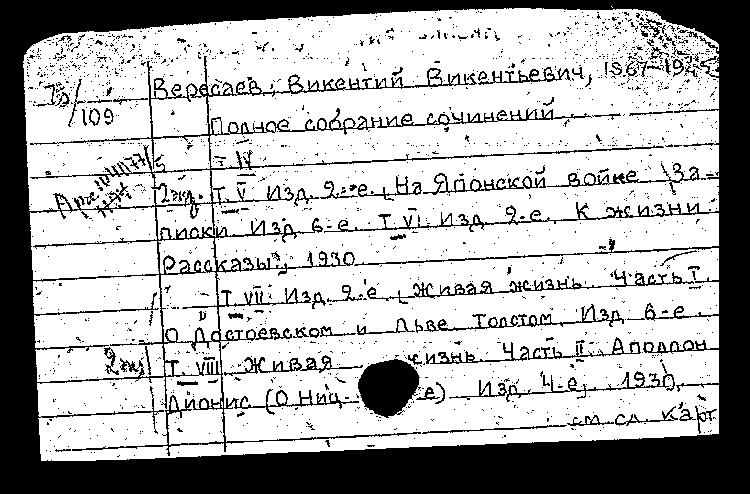 Вересаев, Викентий Викентьевич, 1867-1945
/109
Полное собрание сочинений
Т. IV
2 экз. Т. V Изд. 2-е. На Японской войне За-
писки Изд 6-е. Т. VI. Изд. 2-е. К жизни
Рассказы, 1930
Т. VII Изд. 2-е Живая жизнь Часть I.
О Достоевском и Льве Толстом. Изд 6-е.
2 экз Т. VIII Живая жизнь Часть II. Аполлон
Дионис (О Ниц е) Изд. 4-е, 1930,
см сл. карт